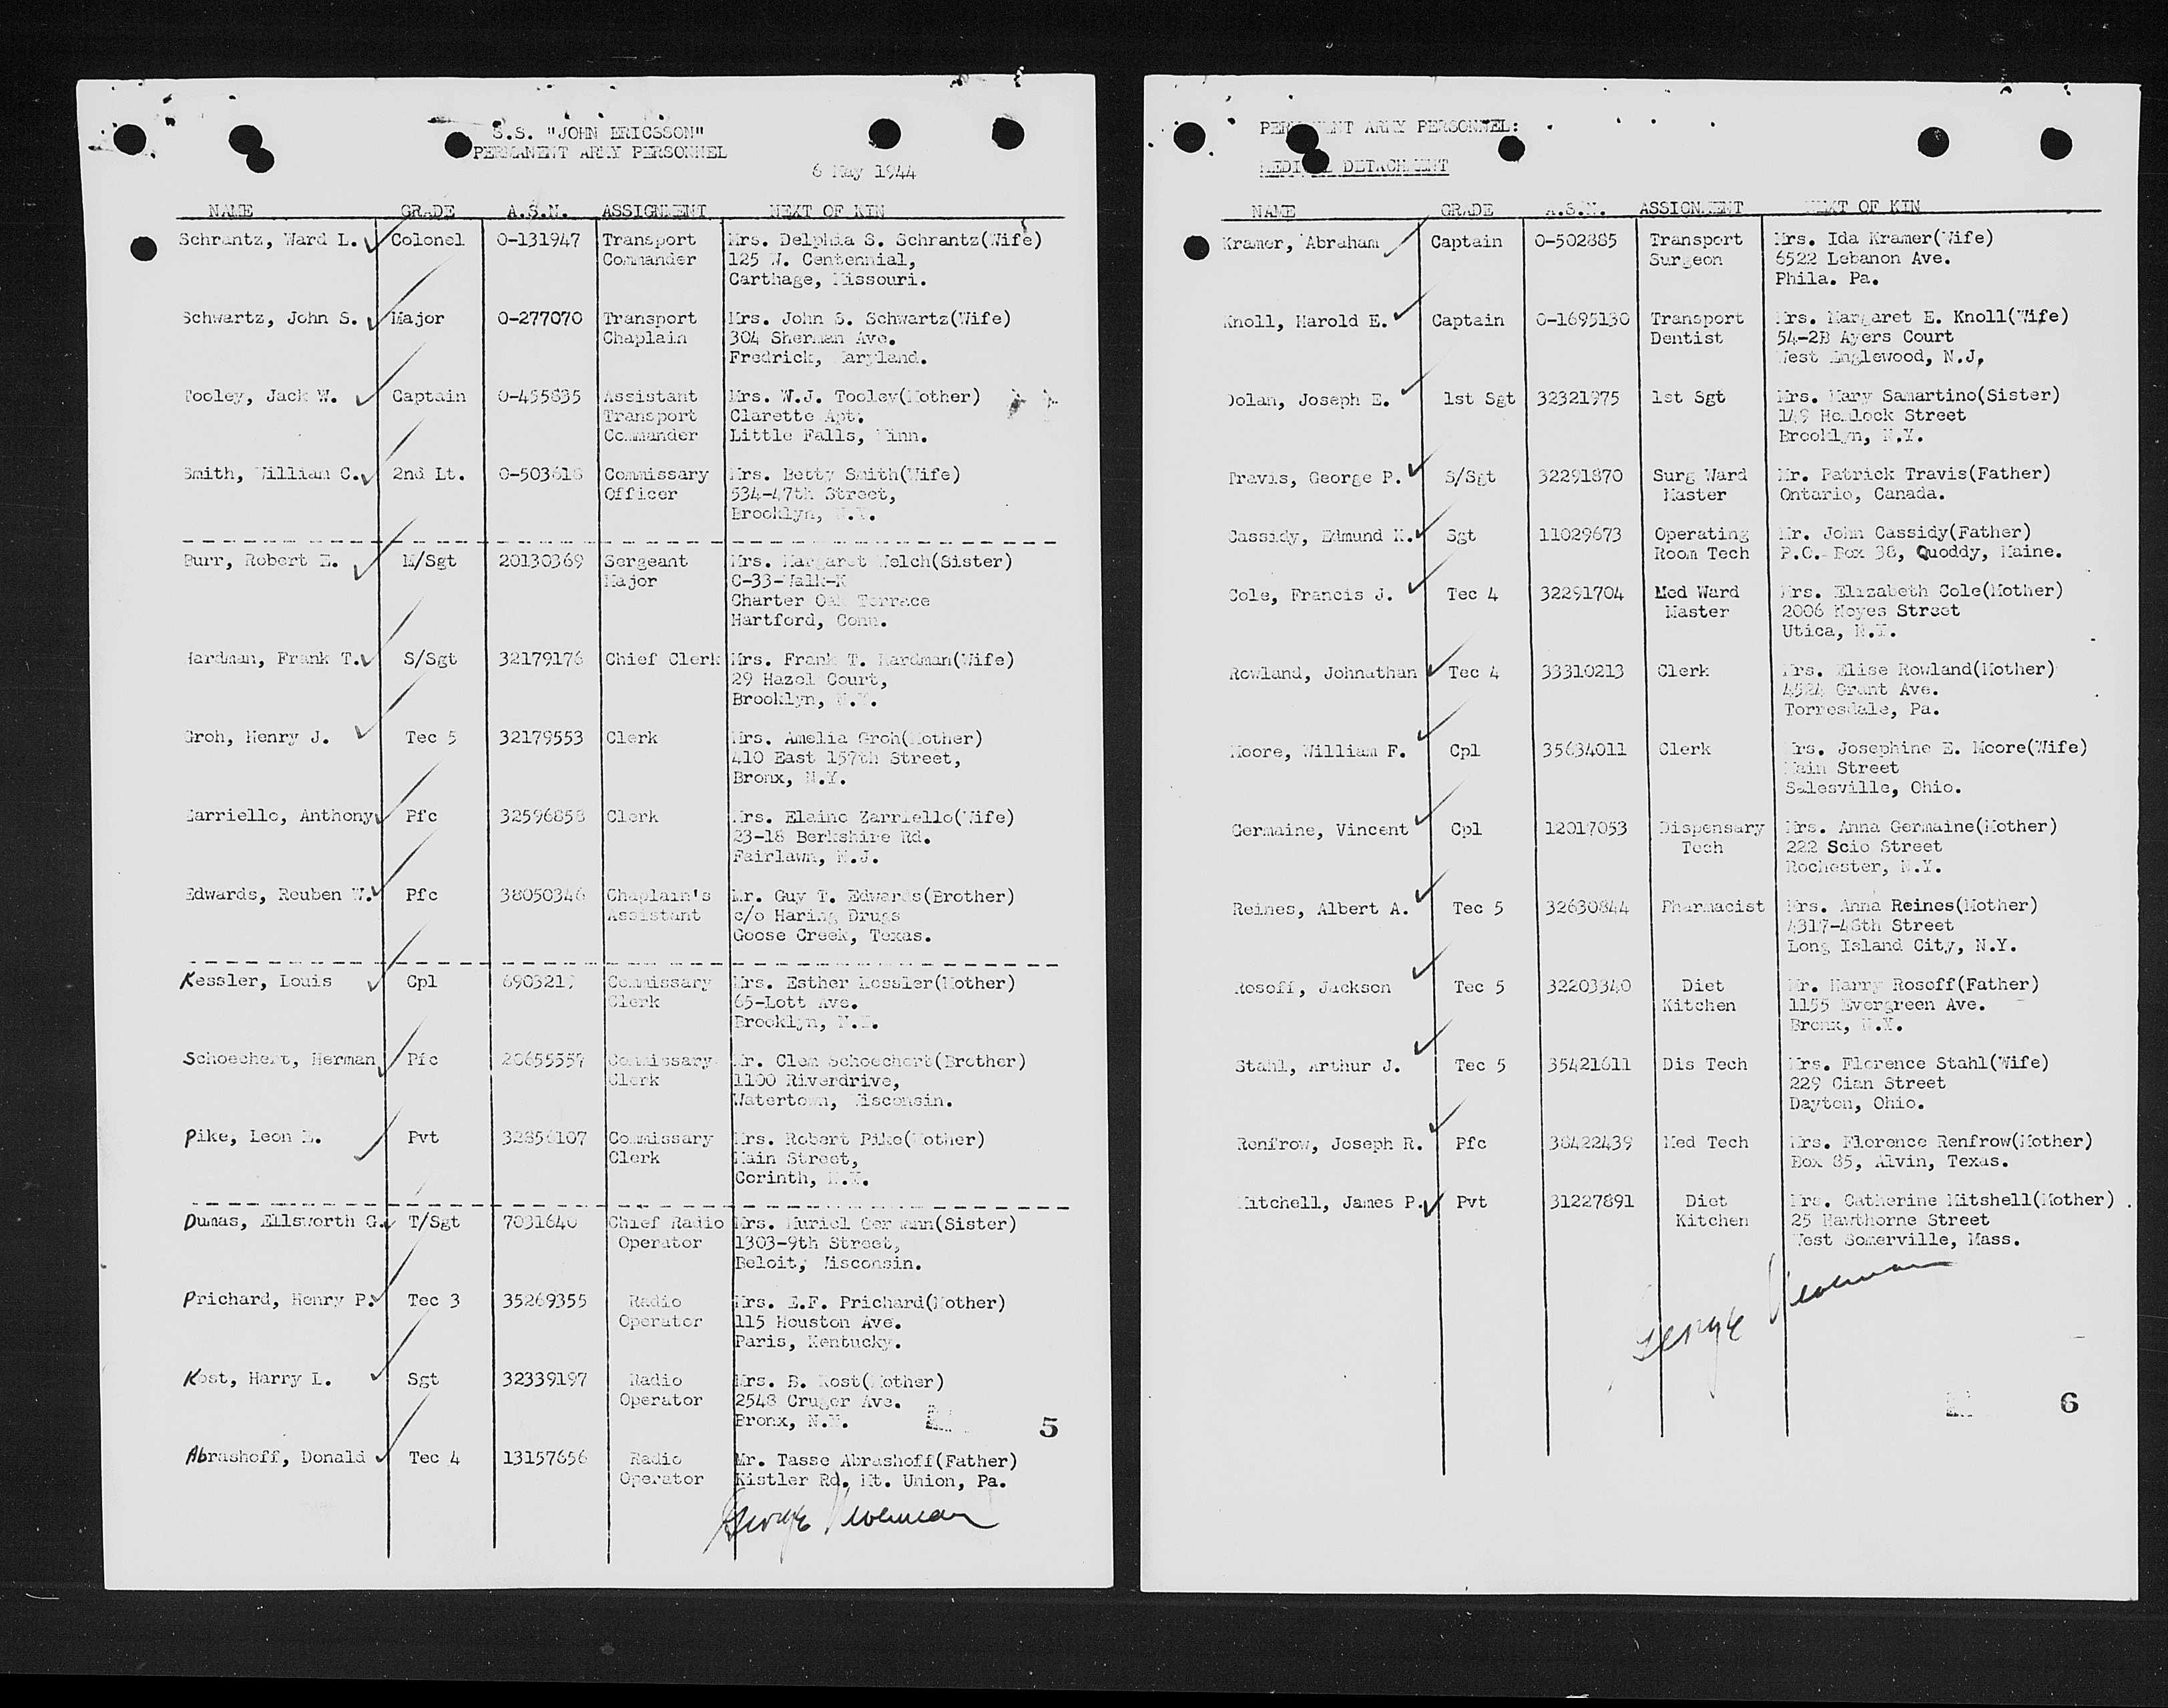 S.S. "JOHN ERICSSON"
PERMANENT ARMY PERSONNEL
6 May 1944
NAME GRADE A.S.N. ASSIGNMENT NEXT OF KIN
Schrantz, Ward L. Colonel O-131947 Transport Mrs. Delphia S. Schrantz(Wife)
Commander 125 W. Centennial,
Carthage, Missouri.
Schwartz, John S. Major O-277070 Transport Mrs. John S. Schwartz(Wife)
Chaplain 304 Sherman Ave.
Fredrick, Maryland.
Tooley, Jack W. Captain O-455835 Assistant Mrs. W.J. Tooley(Mother)
Transport Clarette Apt.
Commander Little Falls, Minn.
Smith, William C. 2nd Lt. Commissary Mrs. Betty Smith(Wife)
Officer 534-47th Street,
Brooklyn, N.Y.
Burr, Robert E. M/Sgt 20130369 Sergeant Mrs. Margaret Welch(Sister)
Major C-33-Walk-K
Charter Oak Terrace
Hartford, Conn.
Hardman, Frank T. S/Sgt 32179176 Chief Clerk Mrs. Frank T. Hardman(Wife)
29 Hazel Court,
Brooklyn, N.Y.
Groh, Henry J. Tec 5 32179553 Clerk Mrs. Amelia Groh(Mother)
410 East 157th Street,
Bronx, N.Y.
Zarriello, Anthony Pfc 32596858 Clerk Mrs. Elaine Zarriello(Wife)
23-18 Berkshire Rd.
Fairlawn, N.J.
Edwards, Reuben W. Pfc 38050346 Chaplain's Mr. Guy T. Edwards(Brother)
Assistant c/o Haring Drugs
Goose Creek, Texas.
Kessler, Louis Cpl Commissary Mrs. Esther Kessler(Mother)
Clerk 65-Lott Ave.
Brooklyn, N.Y.
Schoechert, Herman Pfc 20655557 Commissary Mr. Clem Schoechert(Brother)
Clerk 1100 Riverdrive,
Watertown, Wisconsin.
Pike, Leon Pvt 32856107 Commissary Mrs. Robert Pike(Mother)
Clerk Main Street,
Corinth, N.Y.
Dumas, Ellsworth G. T/Sgt 7031640 Chief Radio Mrs. Muriel (Sister)
Operator 1303-9th Street,
Beloit, Wisconsin.
Prichard, Henry P. Tec 3 35269355 Radio Mrs. E.F. Prichard(Mother)
Operator 115 Houston Ave.
Paris, Kentucky.
Kost, Harry L. Sgt 32339197 Radio Mrs. B. Kost(Mother)
Operator 2548 Cruger Ave.
Bronx, N.Y.
5
Abrashoff, Donald Tec 4 13157656 Radio Mr. Tasse Abrashoff(Father)
Operator Kistler Rd. Mt. Union, Pa.
George
PERMANENT ARMY PERSONNEL:
MEDICAL DETACHMENT
NAME GRADE A.S.N. ASSIGNMENT NEXT OF KIN
Kramer, Abraham Captain O-502885 Transport Mrs. Ida Kramer(Wife)
Surgeon 6522 Lebanon Ave.
Phila. Pa.
Knoll, Harold E. Captain O-1695130 Transport Mrs. Margaret E. Knoll(Wife)
Dentist 54-2B Ayers Court
West Englewood, N.J.
Dolan, Joseph E. 1st Sgt 32321975 1st Sgt Mrs. Mary Samartino(Sister)
149 Hemlock Street
Brooklyn, N.Y.
Travis, George P. S/Sgt 32291870 Surg Ward Mr. Patrick Travis(Father)
Master Ontario, Canada.
Cassidy, Edmund K. Sgt 11029673 Operating Mr. John Cassidy(Father)
Room Tech P.O. Box 38, Quoddy, Maine.
Cole, Francis J. Tec 4 32291704 Med Ward Mrs. Elizabeth Cole(Mother)
Master 2006 Noyes Street
Utica, N.Y.
Rowland, Johnathan Tec 4 33310213 Clerk Mrs. Elise Rowland(Mother)
4524 Grant Ave.
Torresdale, Pa.
Moore, William F. Cpl 35634011 Clerk Mrs. Josephine E. Moore(Wife)
Main Street
Salesville, Ohio.
Germaine, Vincent Cpl 12017053 Dispensary Mrs. Anna Germaine(Mother)
Tech 222 Scio Street
Rochester, N.Y.
Reines, Albert A. Tec 5 32630844 Pharmacist Mrs. Anna Reines(Mother)
4317-48th Street
Long Island City, N.Y.
Rosoff, Jackson Tec 5 32203340 Diet Mr. Harry Rosoff(Father)
Kitchen 1155 Evergreen Ave.
Bronx, N.Y.
Stahl, Arthur J. Tec 5 35421611 Dis Tech Mrs. Florence Stahl(Wife)
229 Cian Street
Dayton, Ohio.
Renfrow, Joseph R. Pfc 38422439 Med Tech Mrs. Florence Renfrow(Mother)
Box 85, Alvin, Texas.
Mitchell, James P. Pvt 31227891 Diet Mrs. Catherine Mitshell(Mother)
Kitchen 25 Hawthorne Street
West Somerville, Mass.
George
6